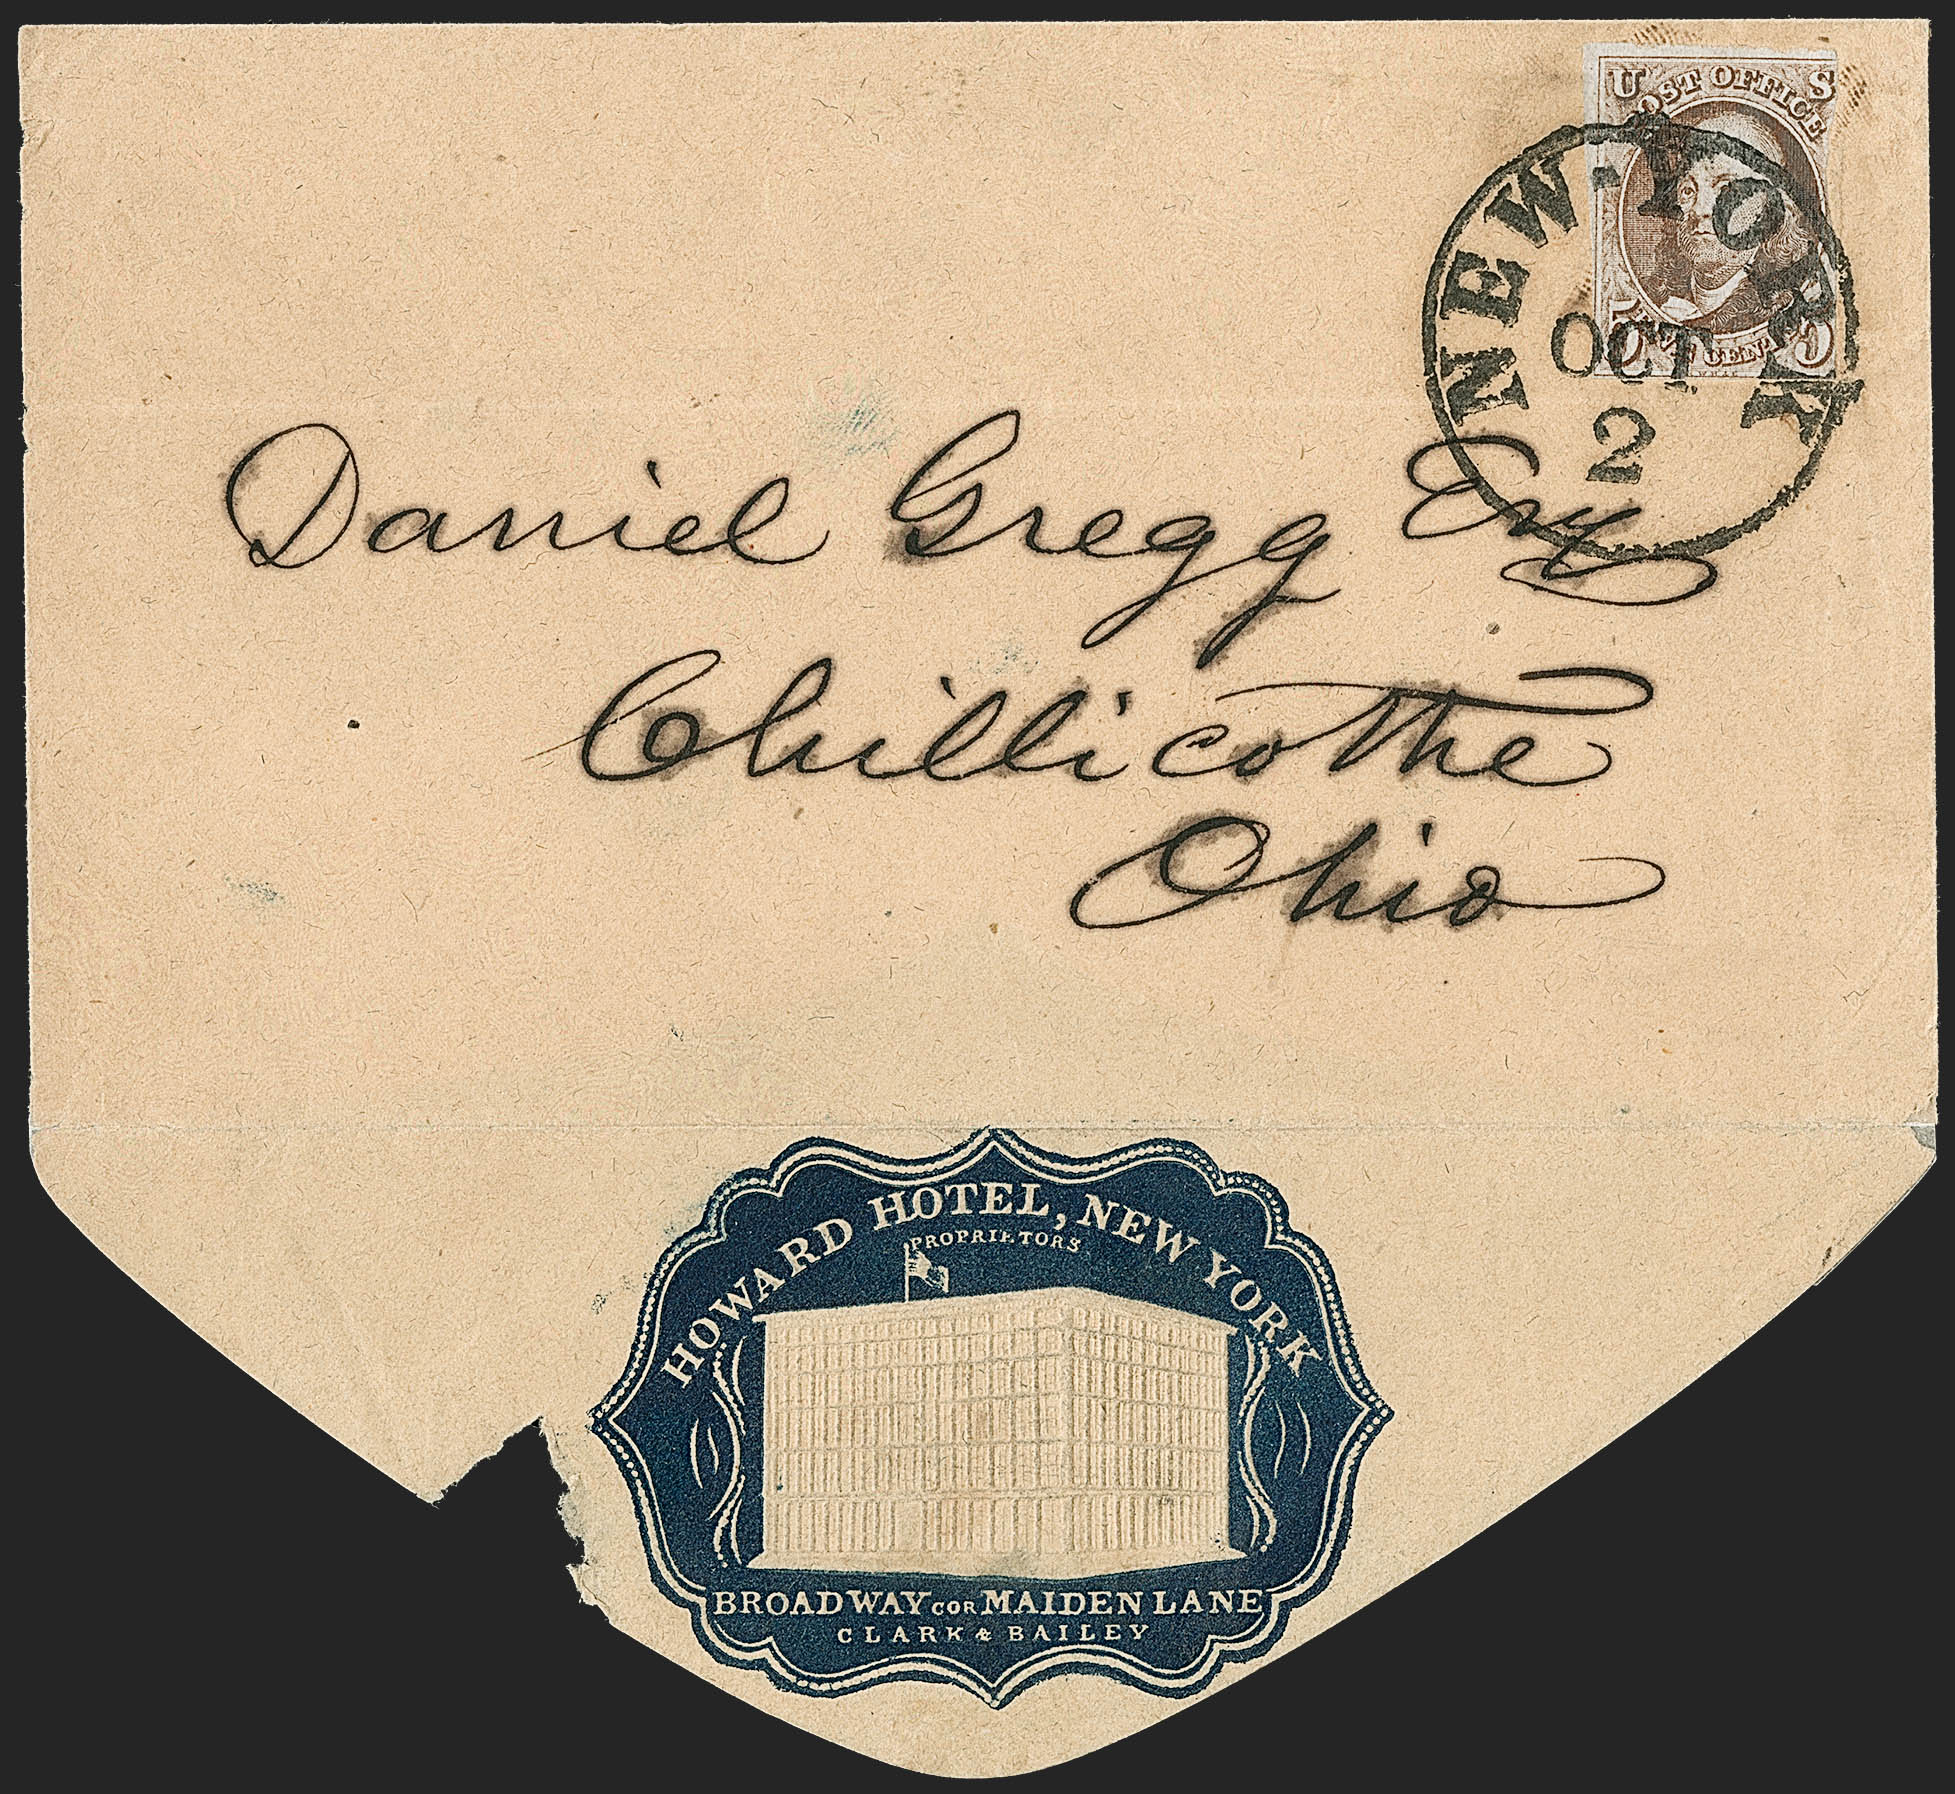 U S
POST OFFICE
FIVE CENTS
5 5
NEW-YORK
OCT
2
Daniel Gregg Esq
Chillicothe
Ohio
HOWARD HOTEL, NEW YORK
PROPRIETORS
BROADWAY COR MAIDEN LANE
CLARK & BAILEY